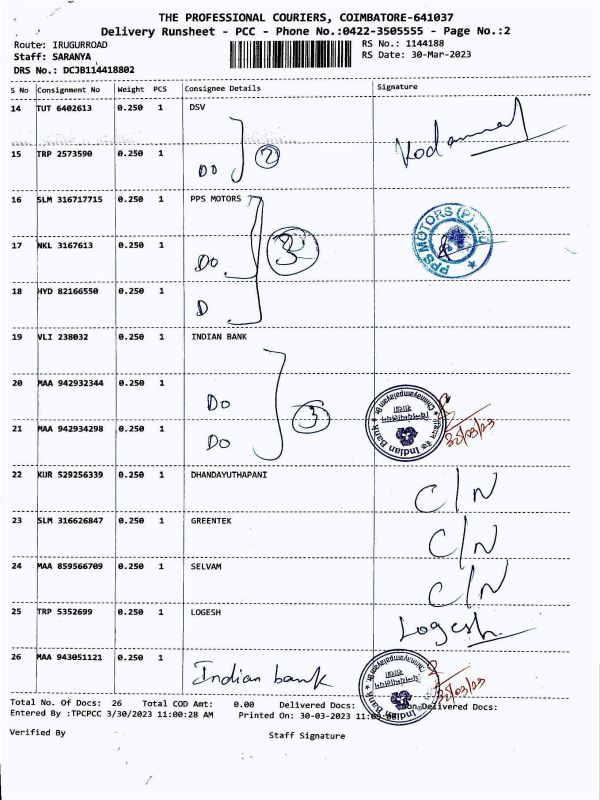 THE PROFESSIONAL COURIERS, COIMBATORE-641037
Delivery Runsheet - PCC - Phone No.:0422-3505555 - Page No.:2
Route: IRUGURROAD RS No.: 1144188
Staff: SARANYA RS Date: 30-Mar-2023
DRS No.: DCJB114418802
S No Consignment No Weight PCS Consignee Details Signature
14 TUT 6402613 0.250 1 DSV
15 TRP 2573590 0.250 1 DO 2
16 SLM 316717715 0.250 1 PPS MOTORS
PPS MOTORS (P) LTD
17 NKL 3167613 0.250 1 DO 3
18 HYD 82166550 0.250 1 D
19 VLI 238032 0.250 1 INDIAN BANK
20 MAA 942932344 0.250 1 DO 3
Indian Bank
21 MAA 942934298 0.250 1 DO
22 KUR 529256339 0.250 1 DHANDAYUTHAPANI C/N
23 SLM 316626847 0.250 1 GREENTEK C/N
24 MAA 859566709 0.250 1 SELVAM C/N
25 TRP 5352699 0.250 1 LOGESH Logesh
26 MAA 943051121 0.250 1 Indian bank
Indian Bank
Total No. Of Docs: 26 Total COD Amt: 0.00 Delivered Docs: Non Delivered Docs:
Entered By :TPCPCC 3/30/2023 11:00:28 AM Printed On: 30-03-2023
Verified By Staff Signature